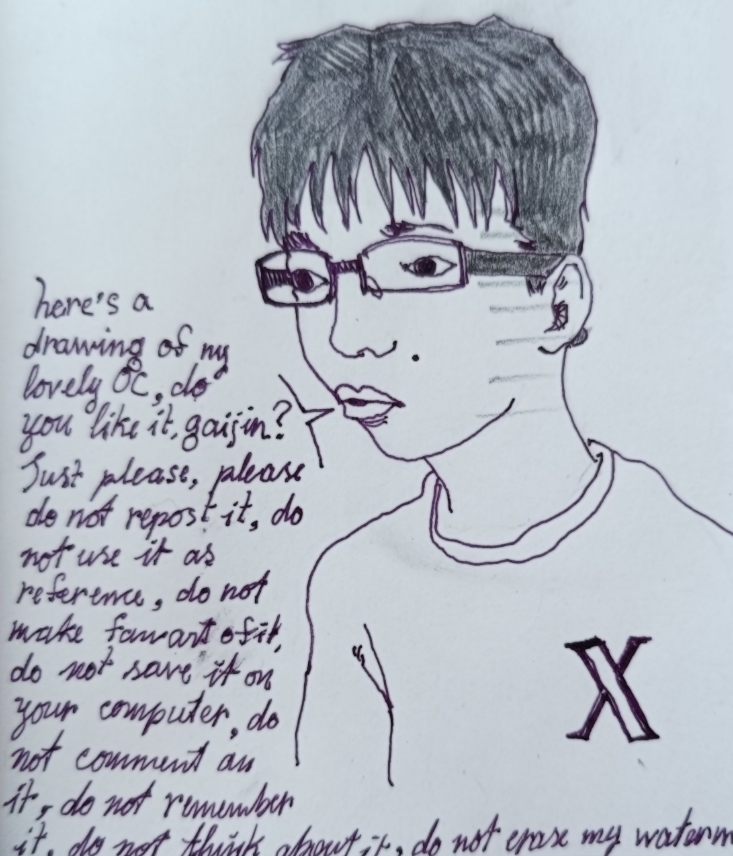 here's a
drawing of my
lovely OC, do
you like it, gaijin?
Just please, please
do not repost it, do
not use it as
reference, do not
make fanart of it,
do not save it on
your computer, do
not comment on
it, do not remember
it, do not think about it, do not erase my waterm
X